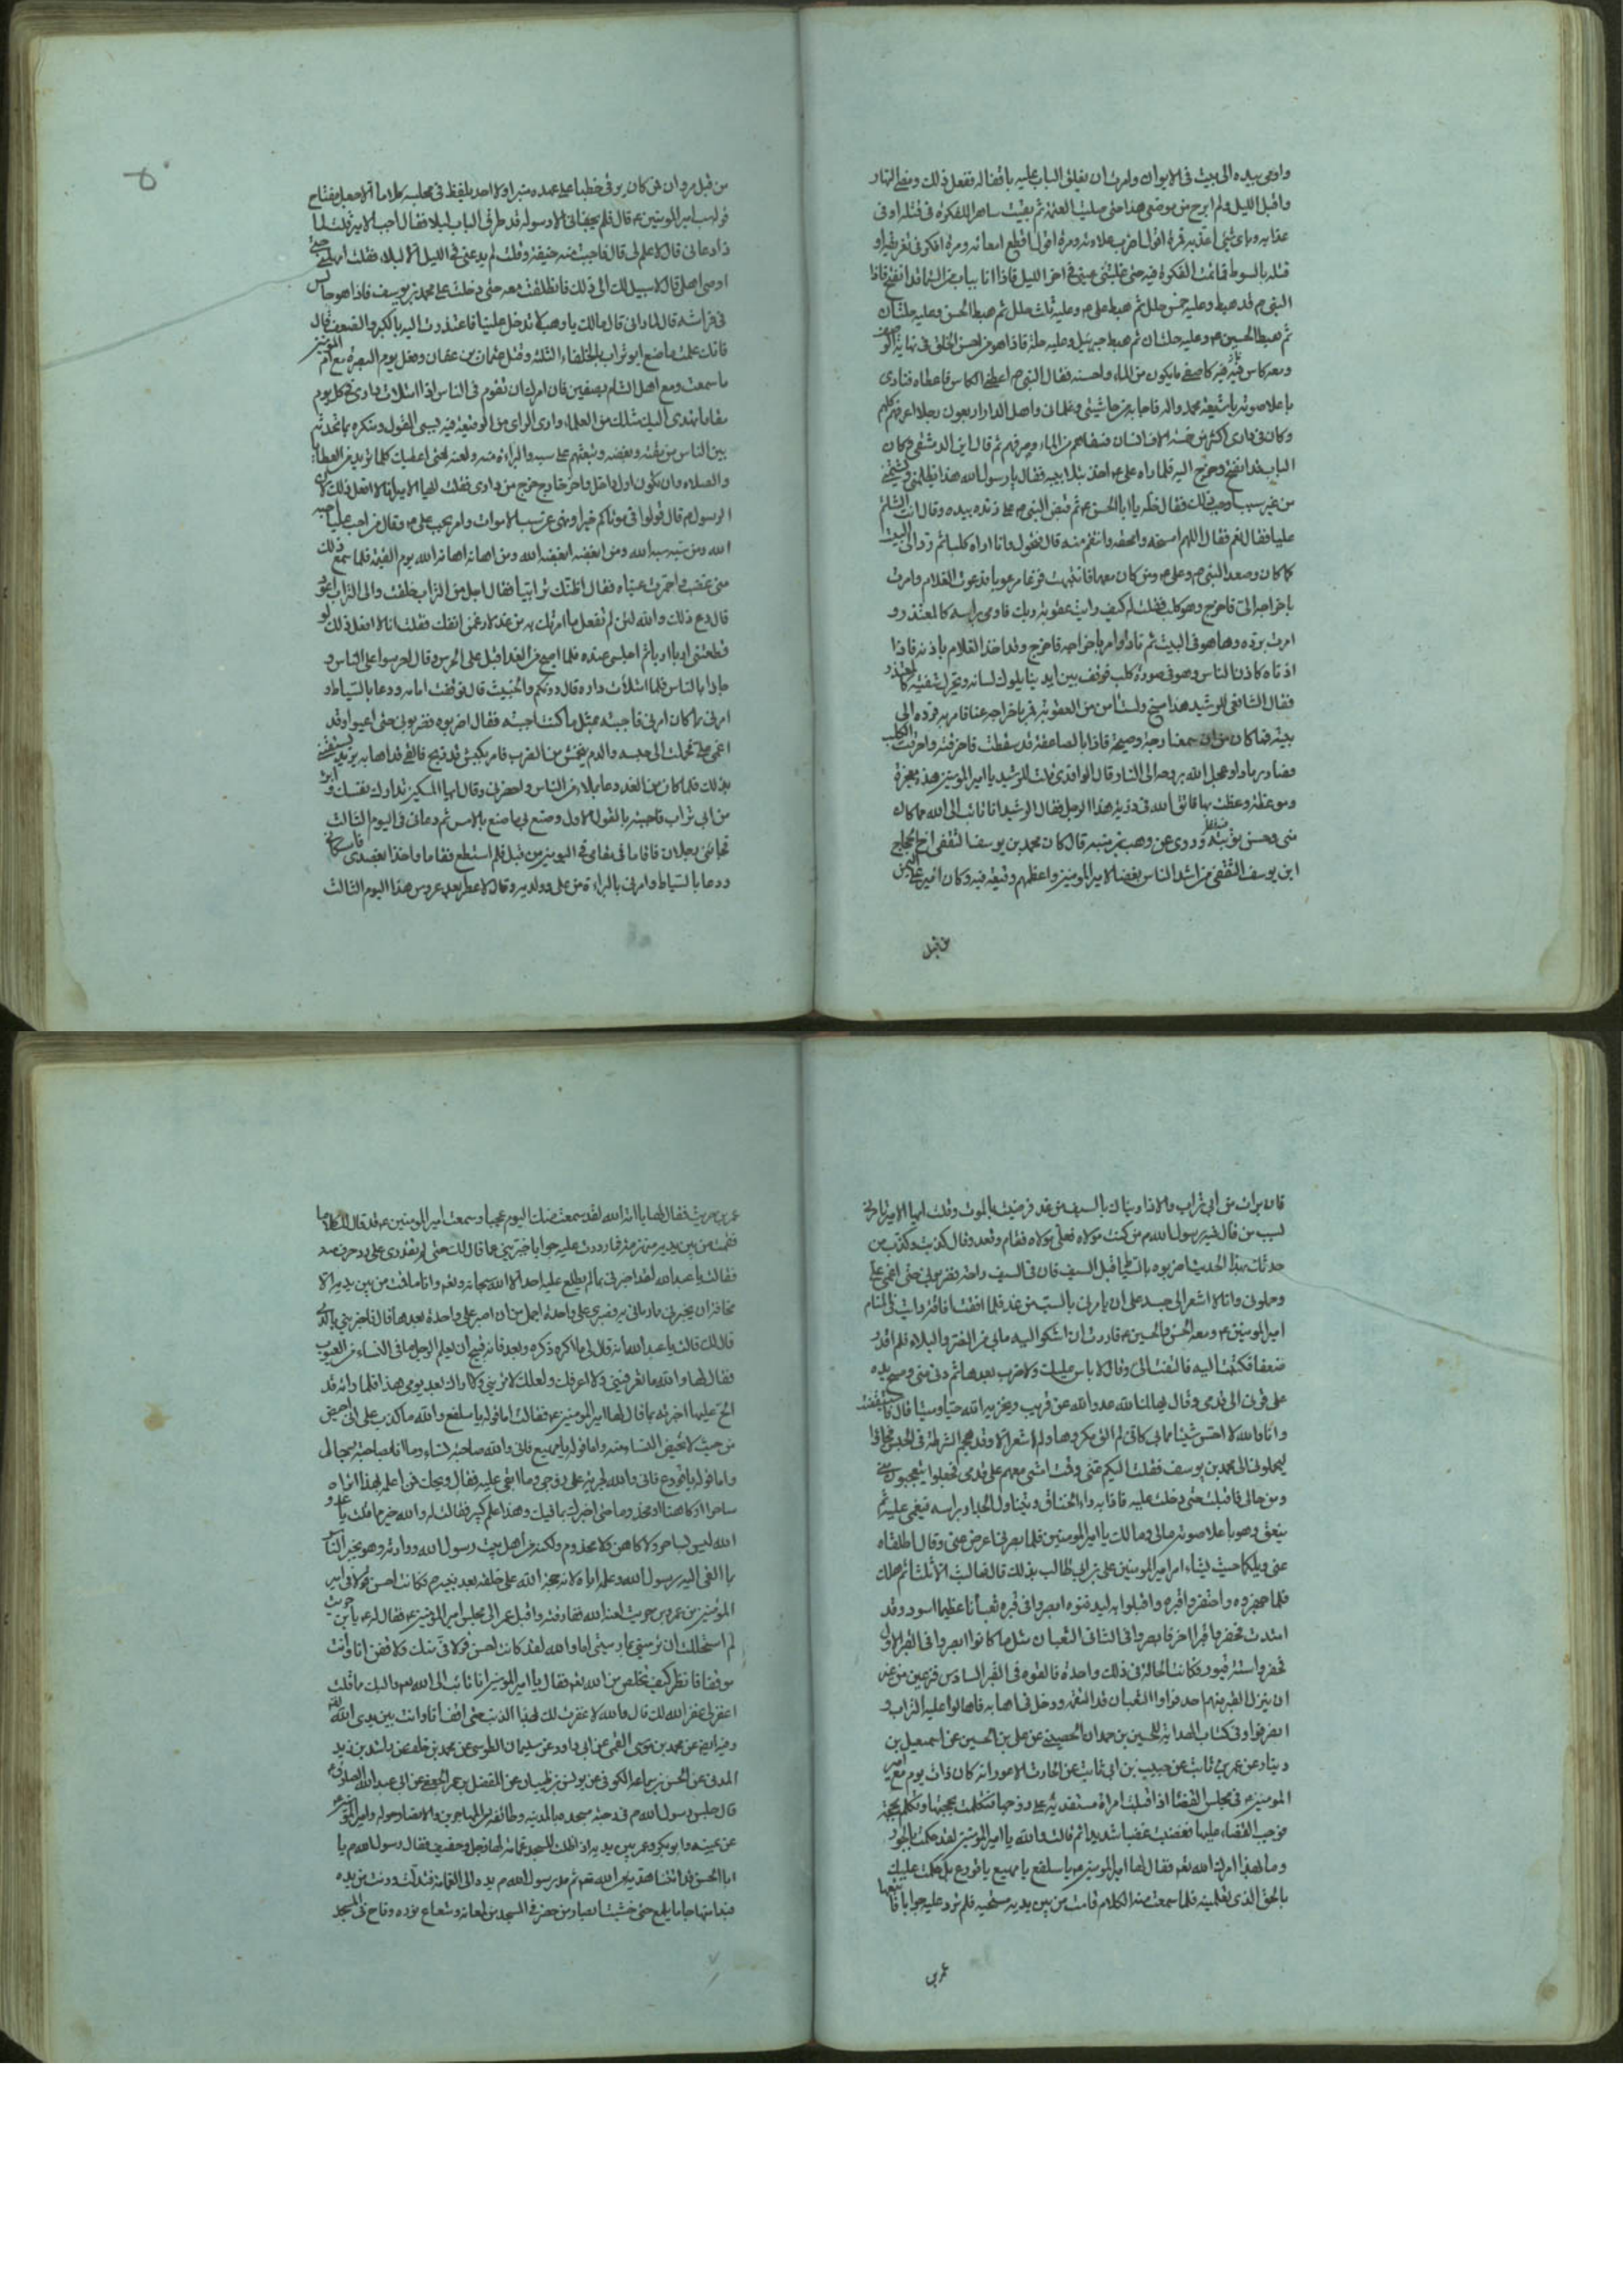 واومى بيده الى بيت فى الايوان وامرت ان يغلق الباب عليه باقفاله ففعل ذلك ومضى النهار
واقبل الليل ولم ابرح من موضعى هذا حتى صليت العتمة ثم بقيت ساهرا للفكرة فى قتله او فى
عذابه وباى شئ اعذبه فمرة اقول اضرب علاوته ومرة اقول اقطع امعائه ومرة افكر فى تغريقه او
قتله بالسوط فما تمت الفكرة فيه حتى غلبتنى عينى فى اخر الليل فاذا انا بباب من السماء قد انفتح فاذا
النبى ص قد هبط وعليه خمس حلل ثم هبط على ع وعليه ثلث حلل ثم هبط الحسن وعليه حلتان
ثم هبط الحسين ع وعليه حلتان ثم هبط جبرئيل وعليه حلة فاذا هو من احسن الخلق فى نهاية الوصف
ومعه كاس فيه كاصفى ما يكون من الماء واحسنه فقال النبى ص اعطنى الكاس فاعطاه فنادى
باعلا صوته يا شيعة محمد واله فاجابه من حاشيتى وغلمانى واهل الدار اربعون رجلا اعرفهم كلهم
وكان فى دارى اكثر من خمسة الاف انسان فسقاهم من الماء وصرفهم ثم قال اين الدمشقى فكان
الباب قد انفتح وخرج اليه فلما راه على ع اخذ بتلابيبه فقال يا رسول الله هذا يظلمنى ويشتمنى
من غير سبب اوجب ذلك فقال خله يا ابا الحسن ثم قبض النبى ص على زنده بيده وقال انت الشاتم
عليا فقال نعم فقال اللهم امسخه وامحقه وانتقم منه قال فتحول وانا اراه كلبا ثم رد الى البيت
كما كان وصعد النبى ص وعلى ع ومن كان معهما فانتبهت فزعا مرعوبا فدعوت الغلام وامرت
باخراجه الى فاخرج وهو كلب فقلت له كيف رايت عقوبة ربك فاومى براسه كالمعتذر و
امرت برده وها هو فى البيت ثم نادى وامر باخراجه فاخرج وقد اخذ الغلام باذنه فاذا
اذناه كاذن الناس وهو فى صورة كلب فوقف بين ايدينا يلوك لسانه ويحرك شفتيه كالمعتذر
فقال الشافعى للرشيد هذا مسخ ولست امن من العقوبة فمر باخراجه عنا فامر به فرده الى
بيته فما كان من ان سمعنا وجبة وصيحة فاذا بالصاعقة قد سقطت فاحرقته واحرقت الكلب
فصار رمادا وعجل الله بروحه الى النار قال الواقدى قلت للرشيد يا امير المؤمنين هذه معجزة
وموعظة وعظت بها فاتق الله فى ذرية هذا الرجل فقال الرشيد انا تائب الى الله مما كان
منى وحسن توبته وروى عن وهب بن منبه قال كان محمد بن يوسف الثقفى اخ الحجاج
ابن يوسف الثقفى من اشد الناس بغضا لامير المؤمنين واعظمهم وقيعة فيه وكان امير على اليمن
من قبل
من قبل مروان فكان يوقى خطباء عنده منبرا ولا احد يلفظ فى مجلسه كلاما الا جعل مفتاح
قوله سب امير المؤمنين ع قال فلم يفجانى الا رسوله قد طرق الباب ليلا فقال اجب الامير قلت لما
ذا دعانى قال لا علم لى قال فاوجست منه خيفة وقلت لم يدعنى فى الليل الا لبلاء فقلت امهلنى حتى
اوصى اهلى قال لا سبيل لك الى ذلك فانطلقت معه حتى دخلت على محمد بن يوسف فاذا هو جالس
فى فراشه قال لما رانى قال مالك يا وهب لا تدخل علينا فاعتذرت اليه بالكبر والضعف فقال
فانك علمت ما صنع ابو تراب بالخلفاء الثلثة وقتل عثمان بن عفان وفعل يوم البصرة مع ام المؤمنين
ما سمعت ومع اهل الشام بصفين فان امرك ان تقوم فى الناس اذا امتلات دارى فى كل يوم
بين الناس من ثلبه وبغضه وتبعثهم على سبه والبراءة منه ولعنه لحتى اعطيك كلما تريد من العطاء
والصلة وان تكون اول داخل واخر خارج من دارى فقلت ايها الامير انا لا افعل ذلك لان
الرسول ص قال قولوا فى موتاكم خيرا ونهى عن سب الاموات وامر بحب على ع وقال من احب عليا احبه
الله ومن سبه سبه الله ومن ابغضه ابغضه الله ومن اهانه اهانه الله يوم القيمة فلما سمع ذلك
منى غضب واحمرت عيناه فقال اظنك ترابيا فقال اجل من التراب خلقت والى التراب اعود
قال دع ذلك والله لئن لم تفعل ما امرتك به من غد لارغمن انفك فقلت انا لا افعل ذلك لو
قطعتنى اربا اربا ثم اجلس عنده فلما اصبح من الغد اقبل على الحرس وقال احرسوا على الناس و
جاءوا بالناس فلما امتلات داره قال دونكم والخبيث قال فوقفت امامه ودعا بالسياط و
امرنى بما كان امرنى فاجبته بمثل ما كنت اجبته فقال اضربوه فضربونى حتى اعيوا وقد
اغمى على فحملت الى حبسه والدم
بذلك فلما كان من الغد دعا بملاء من الناس واحضرنى وقال ايها المسكين تدارك نفسك وابرء
من ابى تراب فاجبته بالقول الاول وصنع بى ما صنع بالامس ثم دعانى فى اليوم الثالث
ودعا بالسياط وامرنى بالبراءة من على وولديه وقال لا عطر بعد عروس هذا اليوم الثالث
فان برات من ابى تراب والا فاذا وبناك بالسيف من غد فرضيت بالموت وقلت ايها الامير تامرنى
لسب من قال فيه رسول الله ص من كنت مولاه فعلى مولاه فقام وقعد وقال كذبت وكذب من
حدثك بهذا الحديث اضربوه بالسياط قبل السيف فان فى السيف راحة فضربونى حتى اغمى على
وحملونى وانا لا اشعر الى حبسه على ان يامرنى بالسب من غد فلما افقت رايت فى المنام
امير المؤمنين ع ومعه الحسن والحسين ع فاردت ان اشكو اليه ما بى من الضر والبلاء فلم اقدر
ضعفا فكنت اليه فالتفت الى وقال لا باس عليك ولا ضرب بعدها ثم دنى منى ومسح بيده
على قرنى الى قدمى وقال يهلك الله عدو الله عن قريب ويخزيه الله حيا وميتا قال فاستيقظت
وانا والله لا احس شيئا مما بى كانى لم الق مكروها ولم اشعر الا وقد هجم الشرطة فى الحبس فجاؤا
ليحملونى الى محمد بن يوسف فقلت اليكم عنى وقمت امشى معهم على قدمى فجعلوا يتعجبون منى
ومن حالى فاقبلت حتى دخلت عليه فاذا به داء الخناق ويتناول الجدار براسه فيغمى عليه ثم
ينعق وهو باعلا صوته مالى ومالك يا امير المؤمنين فلما بصرنى اعرض عنى وقال اطلقاه
عنى ويلكما حيث يشاء امر امير المؤمنين على بن ابى طالب بذلك قال فما لبث الا ثلثا ثم هلك
فلما جهزوه واحتفروا قبره واقبلوا به ليدفنوه ابصروا فى قبره ثعبانا عظيما اسود وقد
امتدت فحفروا قبرا اخر فابصروا فى الثانى الثعبان مثل ما كانوا ابصروا فى القبر الاول
فحفروا ستة قبور وكانت الحالة فى ذلك واحدة فالقوه فى القبر السادس فزعين من غير
ان ينزل القبر منهم احد فراوا الثعبان قد التقمه ودخل فى اهابه فاهالوا عليه التراب و
انصرفوا وفى كتاب الهداية للحسين بن حمدان الحصينى عن على بن الحسين عن اسمعيل بن
دينار عن عمر بن ثابت عن حبيب بن ابى ثابت عن الحارث الاعور انه كان ذات يوم مع امير
المومنين ع فى مجلس القضا اذ اقبلت امراة مستعدية على زوجها فتكلمت بحجتها وتكلم بحجته
فوجب القضاء عليها فغضبت غضبا شديدا ثم قالت والله يا امير المؤمنين لقد حكمت بالجور
وما بهذا امرك الله تعم فقال لها امير المومنين ع يا سلفع يا مهيع يا قردع بل حكمت عليك
بالحق الذى تعلمينه فلما سمعت منه الكلام قامت من بين يديه مستحيية فلم ترد عليه جوابا فاتبعها
عمر بن
عمر بن حريث فقال لها يا امة الله لقد سمعت منك اليوم عجبا وسمعت امير المومنين ع قد قال لك كلاما
فقمت من بين يديه منهزمة فما رددت عليه جوابا خبرينى بما قال لك حتى لم تقدرى على رد حرف منه
فقالت يا عبد الله لقد اخبرنى بما لم يطلع عليه احد الا الله سبحانه وتعم وانا ما قمت من بين يديه الا
مخافة ان يخبرنى بما رمانى به فصبرى على واحدة اجمل من ان اصبر على واحدة بعدها قال فاخبرينى بالذى
قال لك قالت يا عبد الله انه قال لى ما اكره ذكره وبعد فانه قبيح ان يعلم الرجل ما فى النساء من العيوب
فقال لها والله ما تعرفينى ولا اعرفك ولعلك لا ترينى ولا اراك بعد يومى هذا فلما راته قد
الح عليها اخبرته بما قال لها امير المومنين ع فقالت اما قوله يا سلفع والله ما كذب على انى احيض
من حيث لا تحيض النساء منه واما قوله يا مهيع فانى والله صاحبة نساء وما انا بصاحبة رجال
واما قوله يا قردع فانى والله لمخربة على زوجى وما ابقى عليه فقال ويحك فمن اعلمه بهذا اتراه
ساحرا او كاهنا او مخدوما حتى اخبرك بما فيك وهذا علم كبير فقالت له والله خير مما قلت يا عدو
الله ليس بساحر ولا كاهن ولا مخدوم ولكنه من اهل بيت رسول الله ووارثه وهو يخبر الناس
بما القى اليه رسول الله وعلمه اياه لانه حجة الله على خلقه بعد نبيه ص فكانت احسن قولا فى امير
المؤمنين من عمر بن حريث لعنه الله ففارقته واقبل عمر الى مجلس امير المؤمنين ع فقال له ع يا بن حريث
لم استحللت ان ترمينى بما رميتنى اما والله لقد كانت احسن قولا فى منك ولاقفن انا وانت
موقفا فانظر كيف تخلص من الله تعم فقال يا امير المومنين انا تائب الى الله تعم واليك مما قلت
اغفر لى غفر الله لك قال والله لا غفرت لك هذا الذنب حتى اقف انا وانت بين يدى الله
وفيه ايضا عن محمد بن موسى القمى عن ابى داود عن سليمان الطوسى عن محمد بن خلف عن راشد بن زيد
المدنى عن الحسن بن سماعة الكوفى عن يونس بن ظبيان عن المفضل بن عمر الجعفى عن ابى عبد الله الصادق ع
قال جلس رسول الله ص فى رحبة مسجده بالمدينة وطائفة من المهاجرين والانصار حوله وامير المؤمنين ع
عن يمينه وابو بكر وعمر بين يديه اذ اظلت المسجد غمامة لها زجل وحفيف فقال رسول الله ص يا
ابا الحسن قد اتتنا هدية من الله تعم ثم مد رسول الله ص يده الى الغمامة فتدلت ودنت من يده
فبدا منها جام يلمع حتى غشيت ابصار من حضر فى المسجد من لمعانه وشعاع نوره وفاح فى المسجد